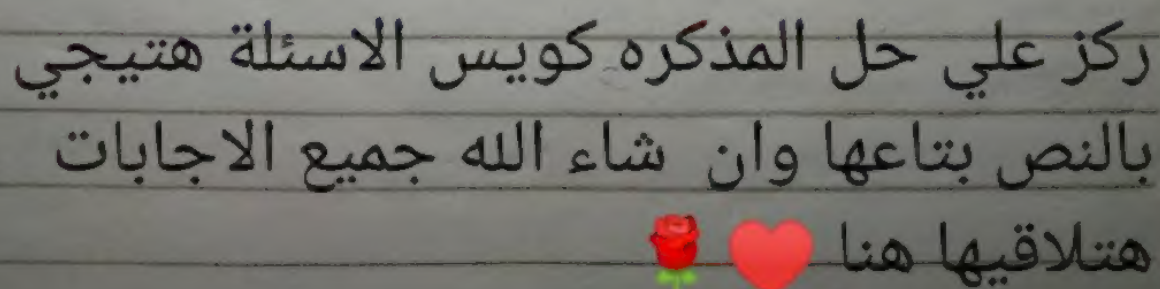 ركز علي حل المذكره كويس الاسئلة هتيجي
بالنص بتاعها وان شاء الله جميع الاجابات
هتلاقيها هنا ❤️🌹